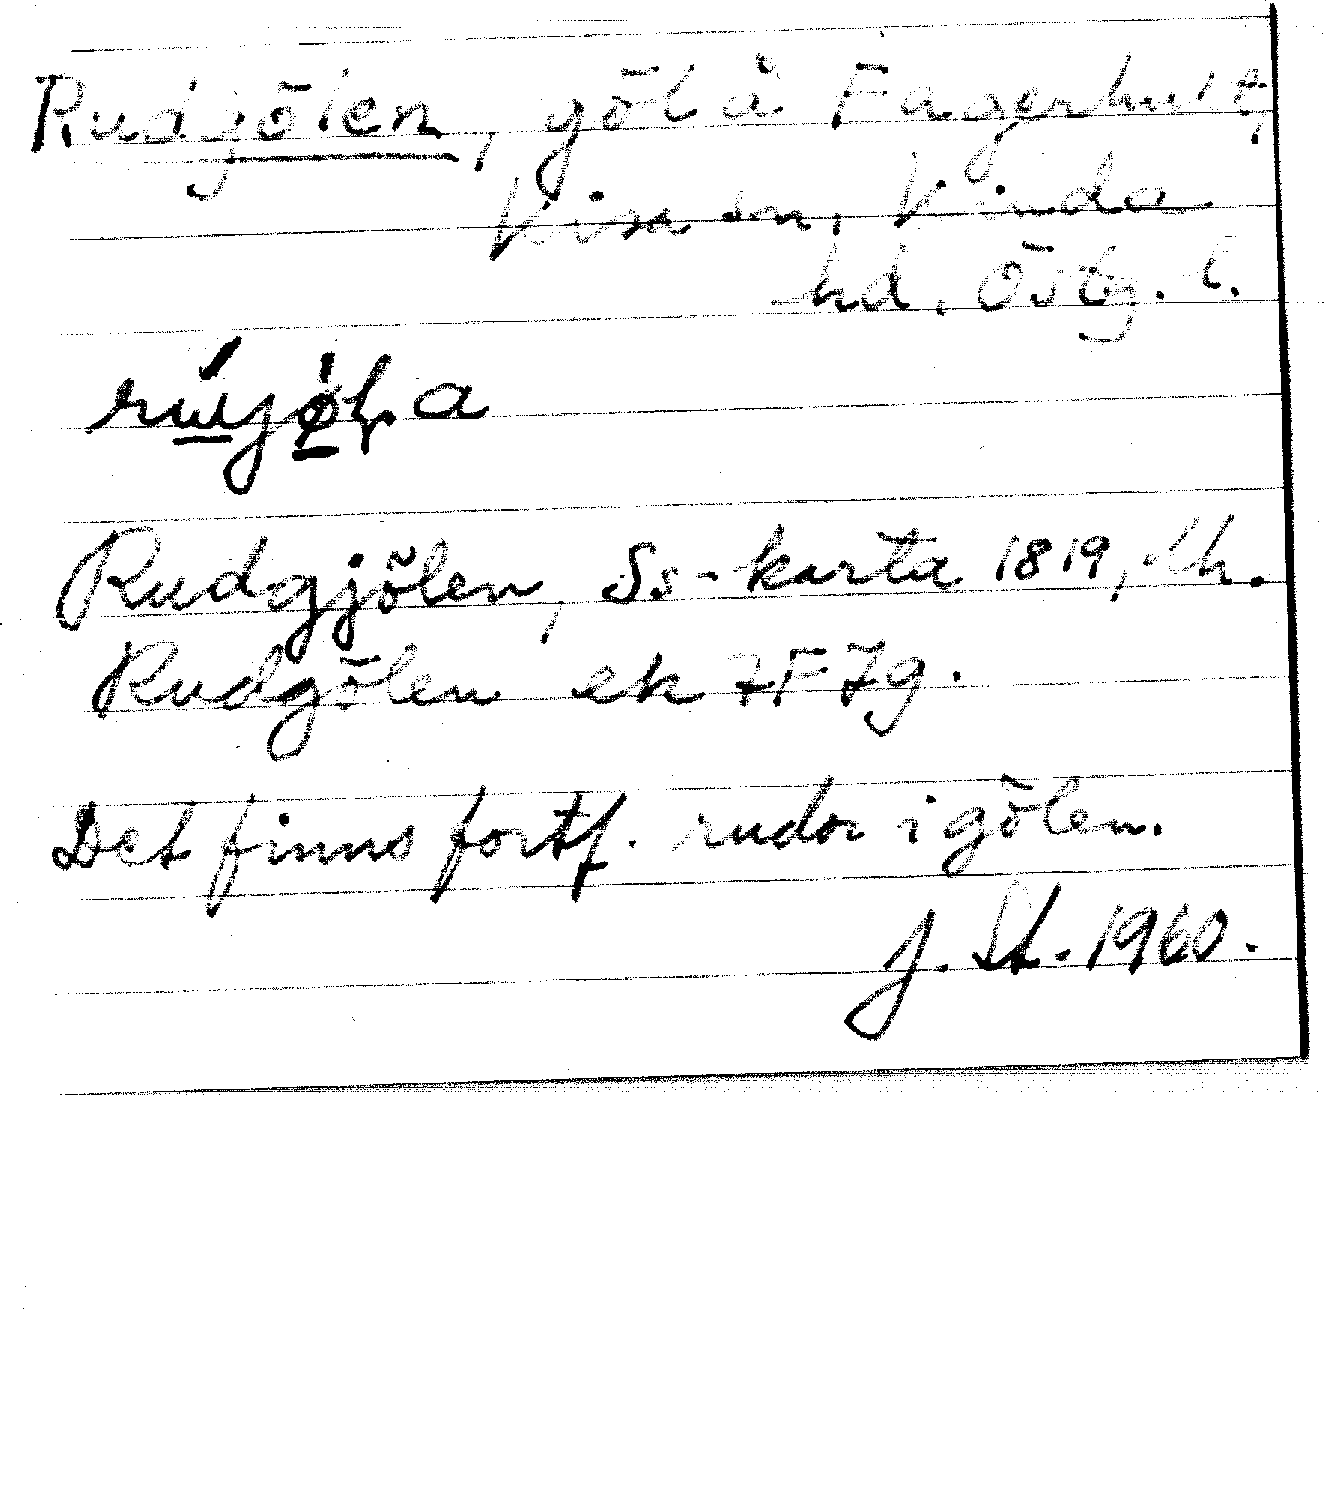 Rudgölen, göl å Fagerhult,
Kisa sn, Kinda
hd. Östg. l.
Rudgjölen, Ss-karta 1819, Lh.
Rudgölen ek 7F7g.
Det finns fortf. rudor i gölen.
J. St. 1960.